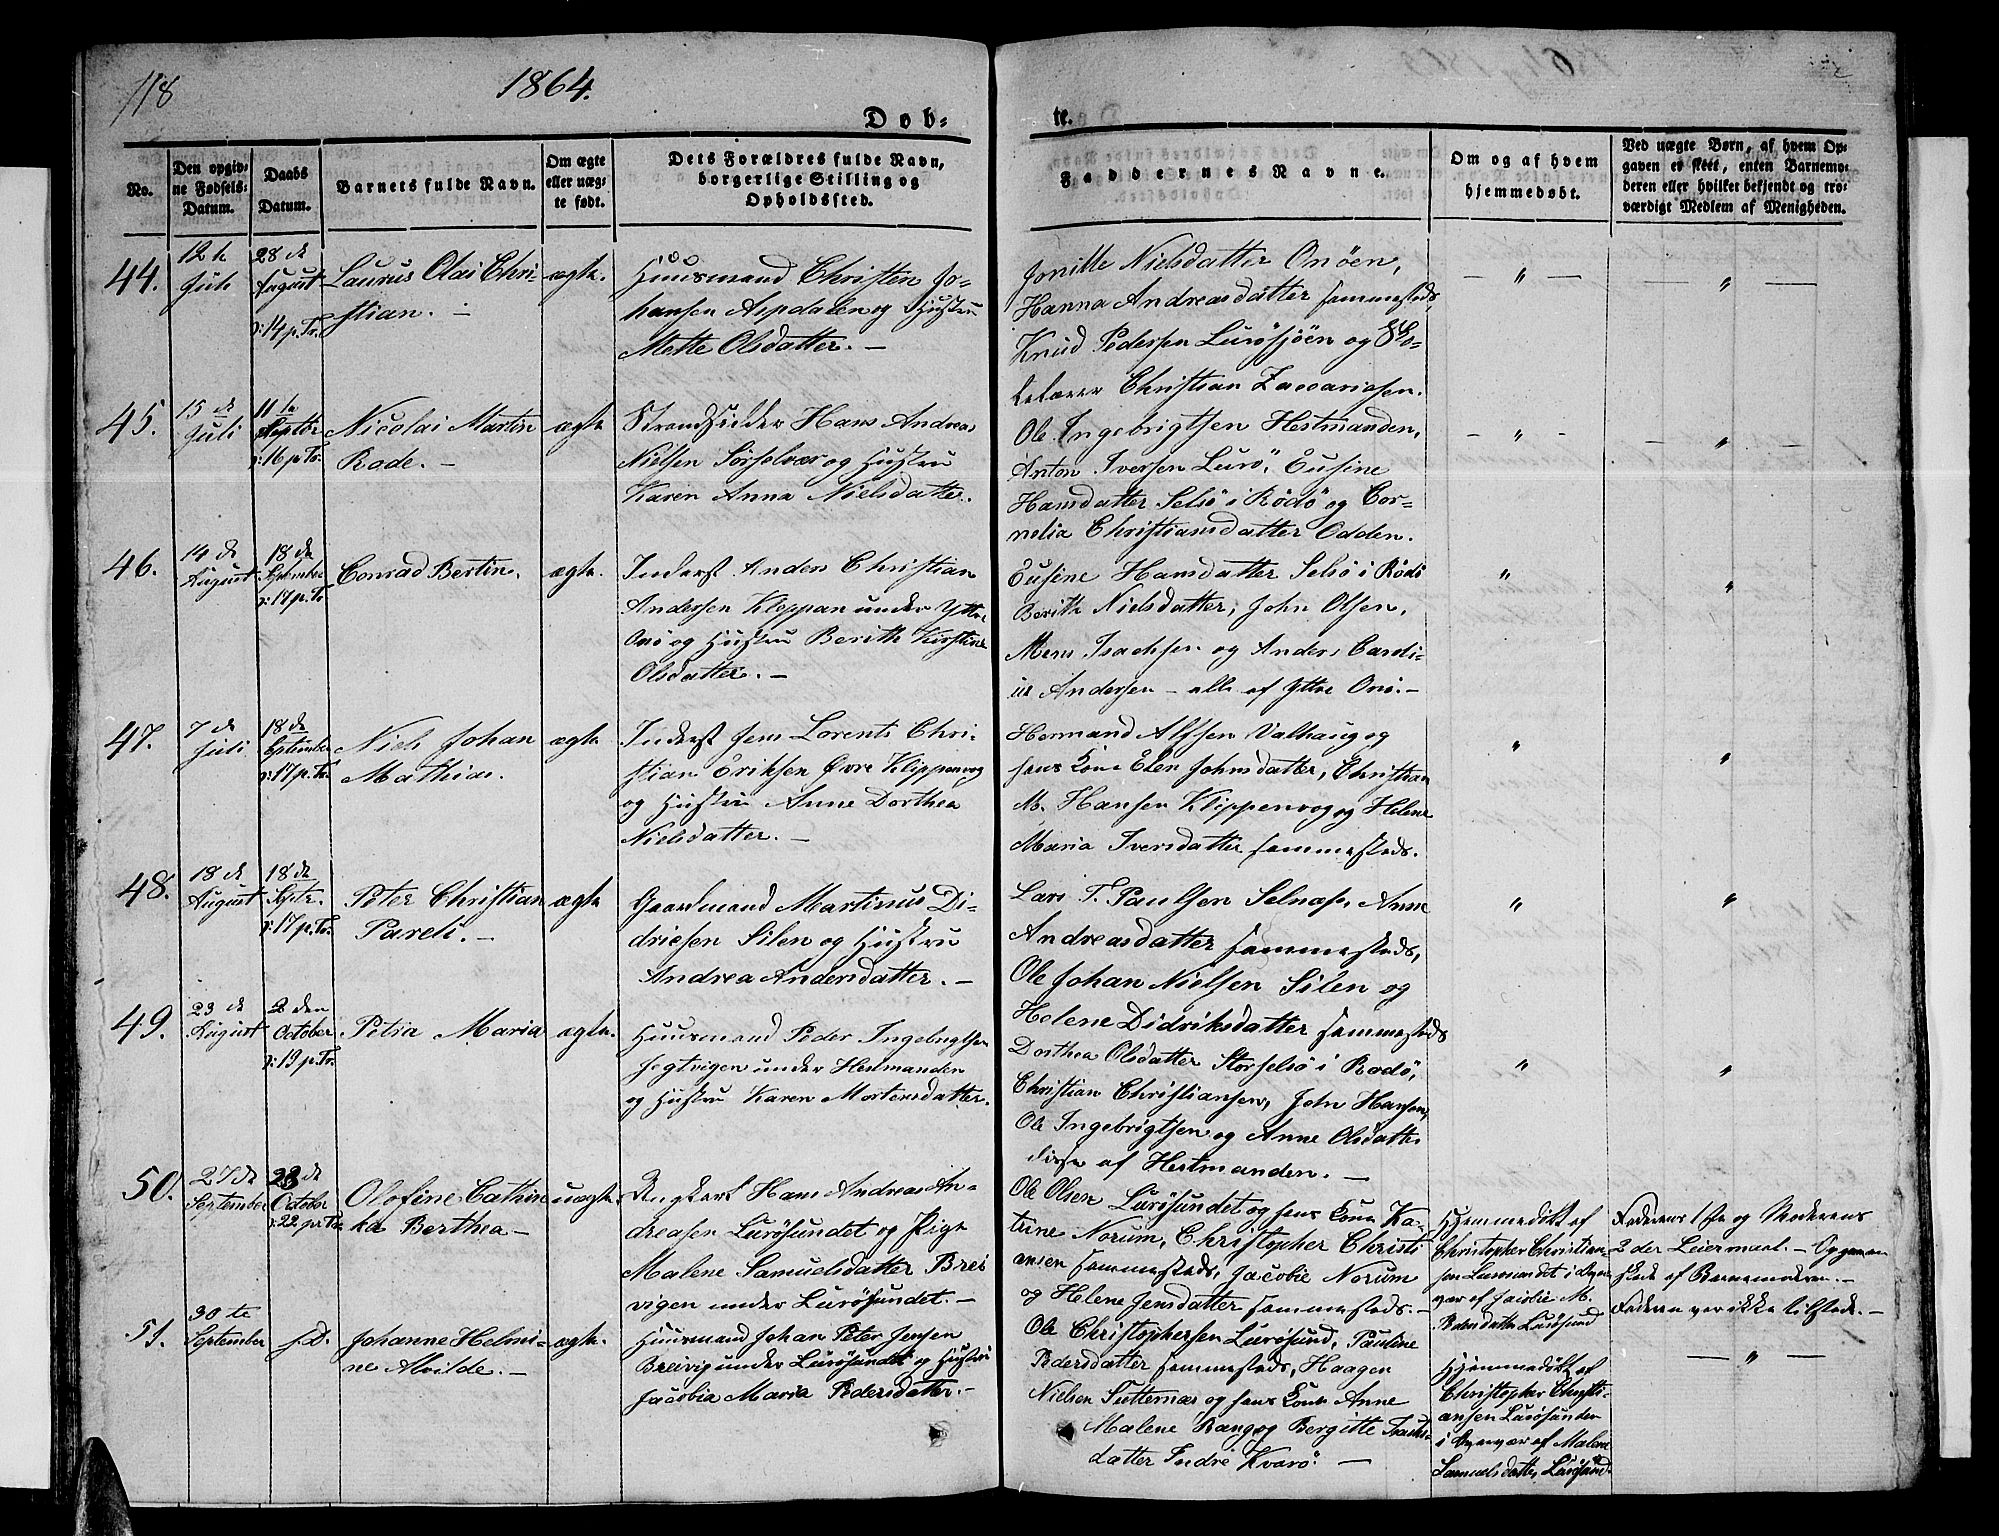 118
1864.
Døb-
te.
No.
Den opgiv-
ne Fødsels-
Datum.
Daabs
Datum.
Barnets fulde Navn.
Om ægte
eller uæg-
te født.
Dets Forældres fulde Navn,
borgerlige Stilling og
Opholdssted.
Faddernes Navne.
Om og af hvem
hjemmedøbt.
Ved uægte Børn, af hvem Op-
gaven er skeet, enten Barnemo-
deren eller hvilket bekjendt og tro-
værdigt Medlem af Menigheden.
44.
12te
Juli
28de
August
ɔ: 14 p. Tr.
Laurus Olai Chri-
stian. —
ægte.
Huusmand Christen Jo-
hansen Aspdalen og Hustru
Mette Olsdatter. —
Jonille Nielsdatter Onøen,
Hanna Andreasdatter sammesteds,
Knud Pedersen Lurøsjøen og Sko-
lelærer Christian Zaccariasen.
— " —
— " —
45.
15de
Juli
11te
Septbr
ɔ: 16 p. Tr.
Nicolai Martin
Rode. —
ægte
Strandsidder Hans Andreas
Nielsen Sørsolvær og Hustru
Karen Anna Nielsdatter.
Ole Ingebrigtsen Hestmanden,
Anton Iversen Lurø, Eusine
Hansdatter Selsø i Rødø og Cor-
nelia Christiansdatter Odden.
— " —
"
46.
14de
August
18de
September
ɔ: 17 p. Tr.
Conrad Bertin.
ægte.
Inderst Anders Christian
Andersen Kleppan under Yttre
Onø og Hustru Berith Kirstine
Olsdatter. —
Eusine Hansdatter Selsø i Rødø
Berith Nielsdatter, John Olsen,
Mons Isachsen og Anders Cardi-
us Andersen — alle af Yttre Onø. —
"
"
47.
7de
Juli
18de
September
ɔ: 17 p. Tr.
Niels Johan
Mathias.
ægte
Inderst Jens Lorents Chri-
stian Eriksen Øvre Klippenvog
og Hustru Anne Dorthea
Nielsdatter. —
Hermand Alfsen Valhaug og
hans Kone Elen Johnsdatter, Christian
M. Hansen Klippenvog og Helene
Maria Iversdatter sammesteds.
"
"
48.
18de
August
18de
Septr.
ɔ: 17 p. Tr.
Peter Christian
Pareli. —
ægte
Gaardmand Martinus Di-
driksen Silen og Hustru
Andrea Andersdatter. —
Lars T. Paulsen Selnæs, Anne
Andreasdatter sammesteds,
Ole Johan Nielsen Silen og
Helene Didriksdatter sammesteds
"
"
49.
23de
August
2den
October
ɔ: 19 p. Tr.
Petra Maria
ægte.
Huusmand Peder Ingebrigtsen
Jegtvigen under Hestmanden
og Hustru Karen Mortensdatter.
Dorthea Olsdatter Storselsø i Rødø,
Christian Christiansen, John Hansen,
Ole Ingebrigtsen og Anne Olsdatter
disse af Hestmanden. —
"
"
50.
27de
September
23de
October
ɔ: 22 p. Tr.
Olofine Cathin
ka Berthea —
uægte.
Ungkarl Hans Andreas An-
dreasen Lurøsundet og Pige
Malene Samuelsdatter Brei
vigen under Lurøsundet. —
Ole Olsen Lurøsundet og hans Kone Ka-
trine Norum, Christopher Christi
ansen sammesteds, Jacobie Norum
og Helene Jensdatter sammesteds. —
Hjemmedøbt af
Christopher Christian-
sen Lurøsundet i Over-
vær af
Pedersdatter Lurøsund
Faderens 1ste og Moderens
2det Leiermaal. — Opgaven
skede af Barnemoderen. —
Faderen var ikke tilstede. —
51.
30te
September
s. D.
Johanne Helmi-
ne Alvilde. —
ægte.
Huusmand Johan Peter Jensen
Breivig under Lurøsundet og Hustru
Jacobia Maria Pedersdatter. —
Ole Christophersen Lurøsund, Pauline
Pedersdatter sammesteds, Haagen
Nielsen Sutternæs og hans Kone Anne
Malene Bang og Bergitte Isachs-
datter Indre Kvarø. —
Hjemmedøbt af
Christopher Christi-
ansen Lurøsundet
i Overvær af Malene
Samuelsdatter Lurøsund.
— " —